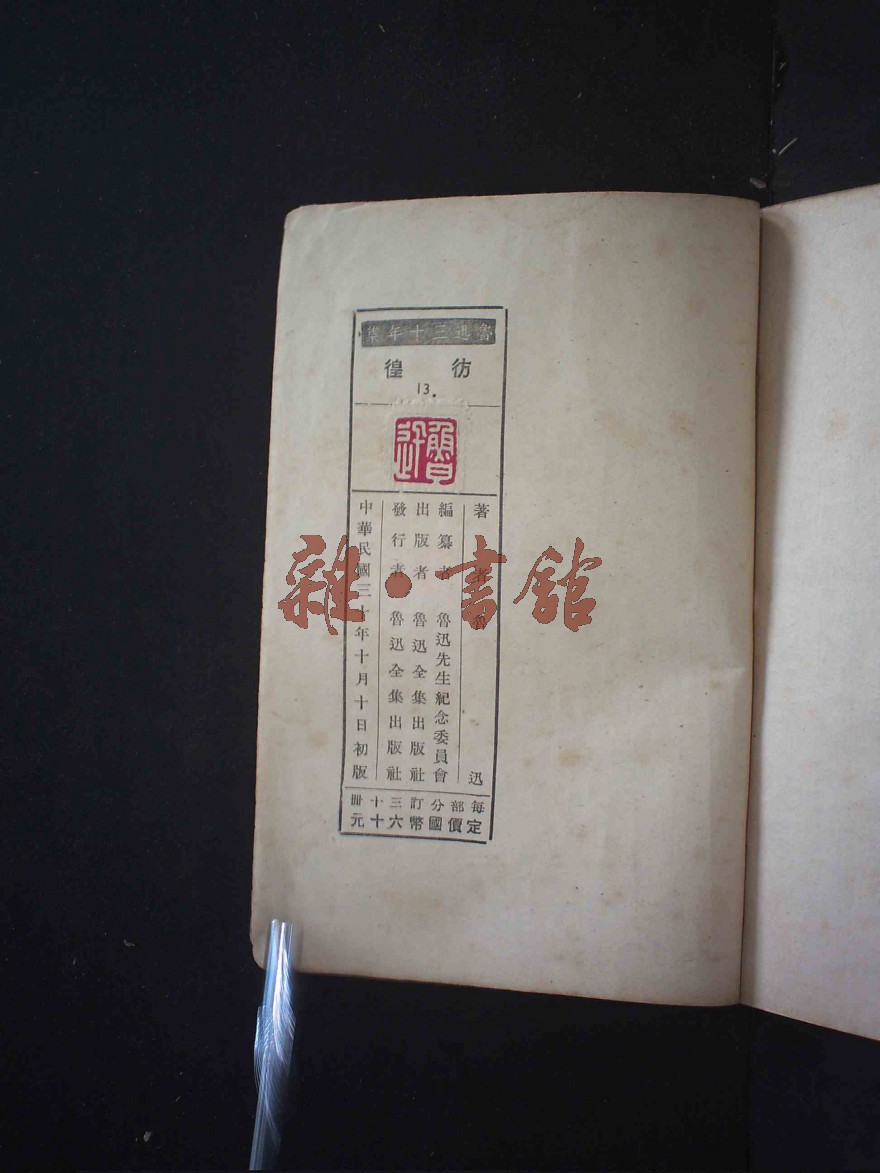 魯迅三十年集
彷徨
13.
魯迅
著者 魯迅
編纂者 魯迅先生紀念委員會
出版者 魯迅全集出版社
發行者 魯迅全集出版社
中華民國三十年十月十日初版
每部分訂三十冊
定價國幣六十元
雜·書館